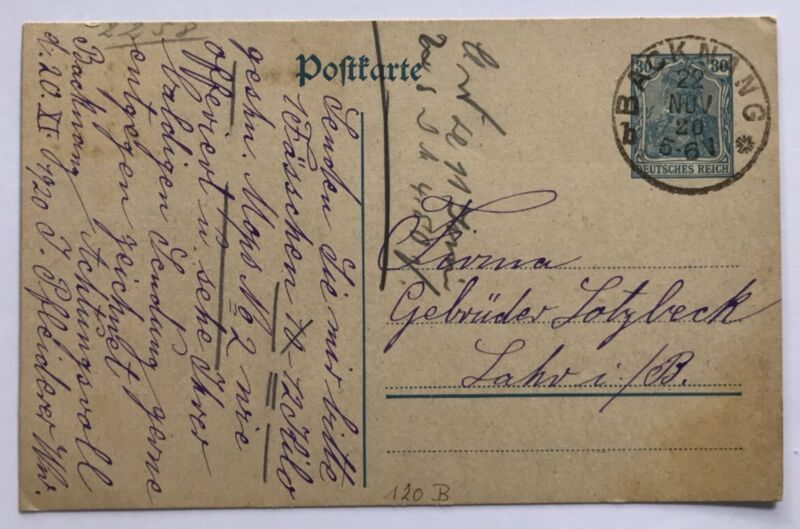 Postkarte
30 30
DEUTSCHES REICH
BACKNANG
22
NOV
20
5-6 N
b
Firma
Gebrüder Lotzbeck
Lahr i/B.
2258
Senden Sie mir bitte
1 Fässchen 120 Kilo
gesln. Mops No 2 wie
offeriert u. sehe Ihrer
baldigen Sendung gerne
entgegen zeichnet
Achtungsvoll
Backnang
d. 20 XI. 1920 J. Pfleiderer Wwe.
120 B